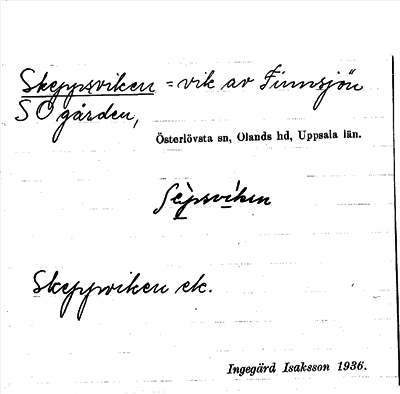 Skeppsviken = vik av Finnsjön
SO gården,
Österlövsta sn, Olands hd, Uppsala län.
Skeppsviken ek.
Ingegärd Isaksson 1936.